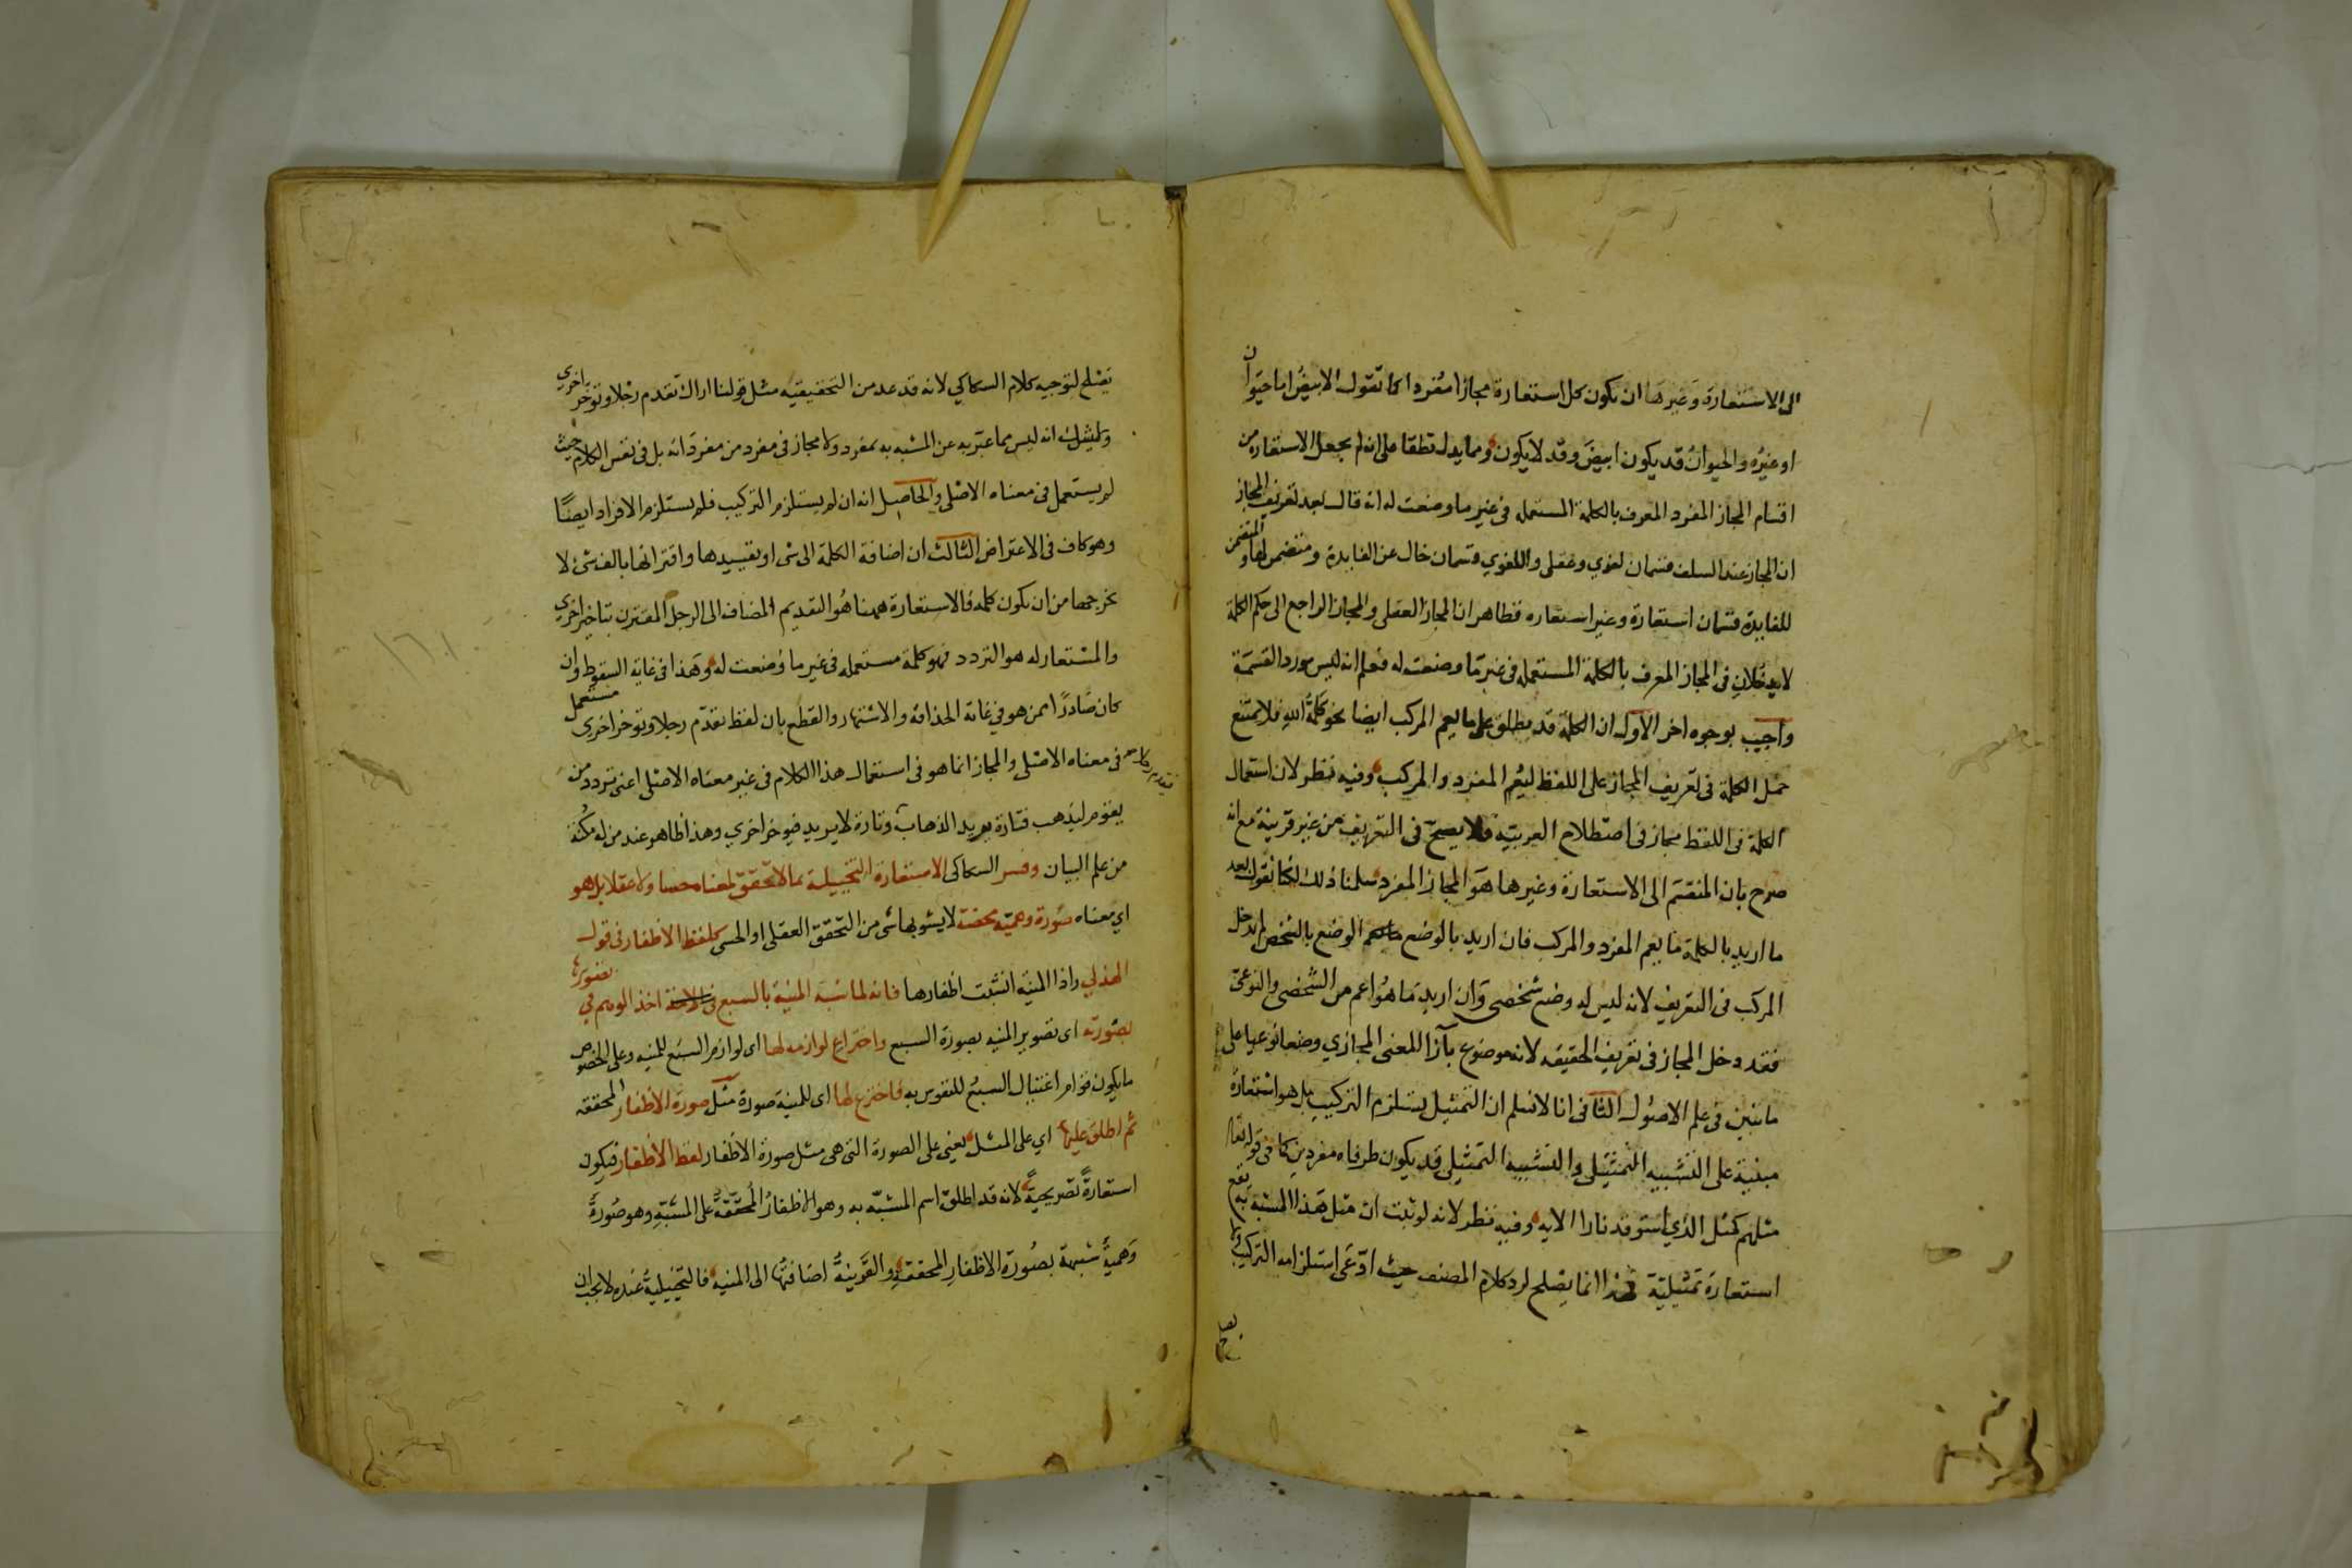 الى الاستعارة وغيرها ان تكون كل استعارة مجازا مفردا كما تقول الابيض اما حيوان
او غيره والحيوان قد يكون ابيض وقد لا يكون ومما يدل قطعا على انه لم يجعل الاستعارة من
اقسام المجاز المفرد المعرف بالكلمة المستعملة فى غير ما وضعت له انه قال بعد تعريف المجاز
ان المجاز عند السلف قسمان لغوي وعقلى واللغوي قسمان خال عن الفايدة ومتضمن لها والمتضمن
للفايدة قسمان استعارة وغير استعارة فظاهر ان المجاز العقلى والمجاز الراجع الى حكم الكلمة
لا يدخلان فى المجاز المعرف بالكلمة المستعملة فى غير ما وضعت له فعلم انه ليس مورد القسمة
واجيب بوجوه اخر الاول ان الكلمة قد يطلق على ما يعم المركب ايضا نحو كلمة الله فلا يمتنع
حمل الكلمة فى تعريف المجاز على اللفظ ليعم المفرد والمركب وفيه نظر لان استعمال
الكلمة فى اللفظ مجاز فى اصطلاح العربية فلا يصح فى التعريف من غير قرينة مع انه
صرح بان المنقسم الى الاستعارة وغيرها هو المجاز المفرد سلمنا ذلك لكنا نقول بعد
ما اريد بالكلمة ما يعم المفرد والمركب فان اريد بالوضع الوضع بالشخص لم يدخل
المركب فى التعريف لانه ليس له وضع شخصى وان اريد ما هو اعم من الشخصى والنوعى
فقد دخل المجاز فى تعريف الحقيقه لانه موضوع بآزا المعنى المجازي وضعا نوعيا على
ما تبين فى علم الاصول الثانى انا لا نسلم ان التمثيل يستلزم التركيب بل هو استعارة
مبنية على التشبيه التمثيلى والتشبيه التمثيلى قد يكون طرفاه مفردين كما فى قوله تعالى
مثلهم كمثل الذي استوقد نارا الايه وفيه نظر لانه لو ثبت ان مثل هذا المشبه به يقع
استعارة تمثيلية فهذا انما يصلح لرد كلام المصنف حيث ادعى استلزامه التركيب ولا
يصلح
يصلح لتوجيه كلام السكاكي لانه قد عد من التحقيقيه مثل قولنا اراك تقدم رجلا وتؤخر اخري
ولا شك انه ليس مما عبر به عن المشبه به بمفرد ولا مجاز فى مفرد من مفرداته بل فى نفس الكلام حيث
لم يستعمل فى معناه الاصلى والحاصل انه ان لم يستلزم التركيب فلم يستلزم الافراد ايضا
وهو كاف فى الاعتراض الثالث ان اضافة الكلمة الى شى او تقييدها واقترانها بالف شئ لا
يخرجها من ان تكون كلمة فالاستعارة ههنا هو التقديم المضاف الى الرجل المقترن بتاخير اخري
والمستعار له هو التردد فهو كلمة مستعمله فى غير ما وضعت له وهذا فى غاية السقوط وان
كان صادرا ممن هو في غاية الحذاقة والاشتهار والقطع بان لفظ تقدم رجلا وتؤخر اخري مستعمل
فى معناه الاصلى والمجاز انما هو فى استعمال هذا الكلام فى غير معناه الاصلى اعنى تردد من
يقوم ليذهب فتارة يريد الذهاب وتارة لا يريد فيؤخر اخري وهذا ظاهر عند من له مكنة
من علم البيان وفسر السكاكى الاستعارة التخييلية بما لا تحقق لمعناه حسا ولا عقلا بل هو
اي معناه صورة وهمية محضة لا يشوبها شئ من التحقق العقلى او الحسى كلفظ الاظفار فى قول
الهذلي واذا المنية انشبت اظفارها فانه لما شبه المنية بالسبع اخذ الوهم في تصويرها
بصورته اى تصوير المنيه بصورة السبع واختراع لوازمه لها اى لوازم السبع للمنيه وعلى الخصوص
ما يكون قوام اغتيال السبع للنفوس به فاخترع لها اى للمنية صورة مثل صورة الاظفار المحققه
ثم اطلق عليها اي على المثل يعنى على الصورة التى هى مثل صورة الاظفار لفظ الاظفار فيكون
استعارة تصريحية لانه قد اطلق اسم المشبه به وهو الاظفار المحققة على المشبه وهو صورة
وهمية شبيهة بصورة الاظفار المحققة والقرينة اضافتها الى المنية فالتخييلية عنده لا يجب ان